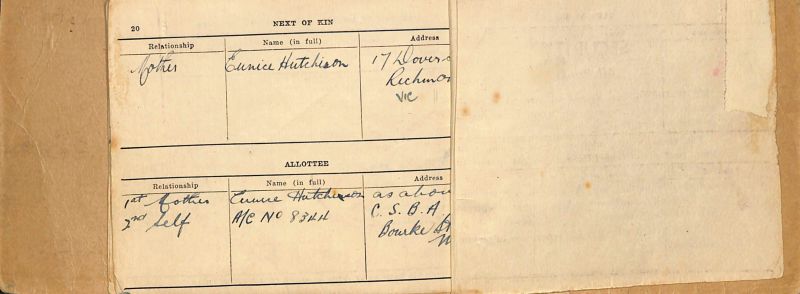 20
NEXT OF KIN
Relationship Name (in full) Address
Mother Eunice Hutchison 17 Dover
Richmon
VIC
ALLOTTEE
Relationship Name (in full) Address
1st Mother Eunice Hutchison as abov
2nd Self A/C No 8344 C. S. B. A.
Bourke St